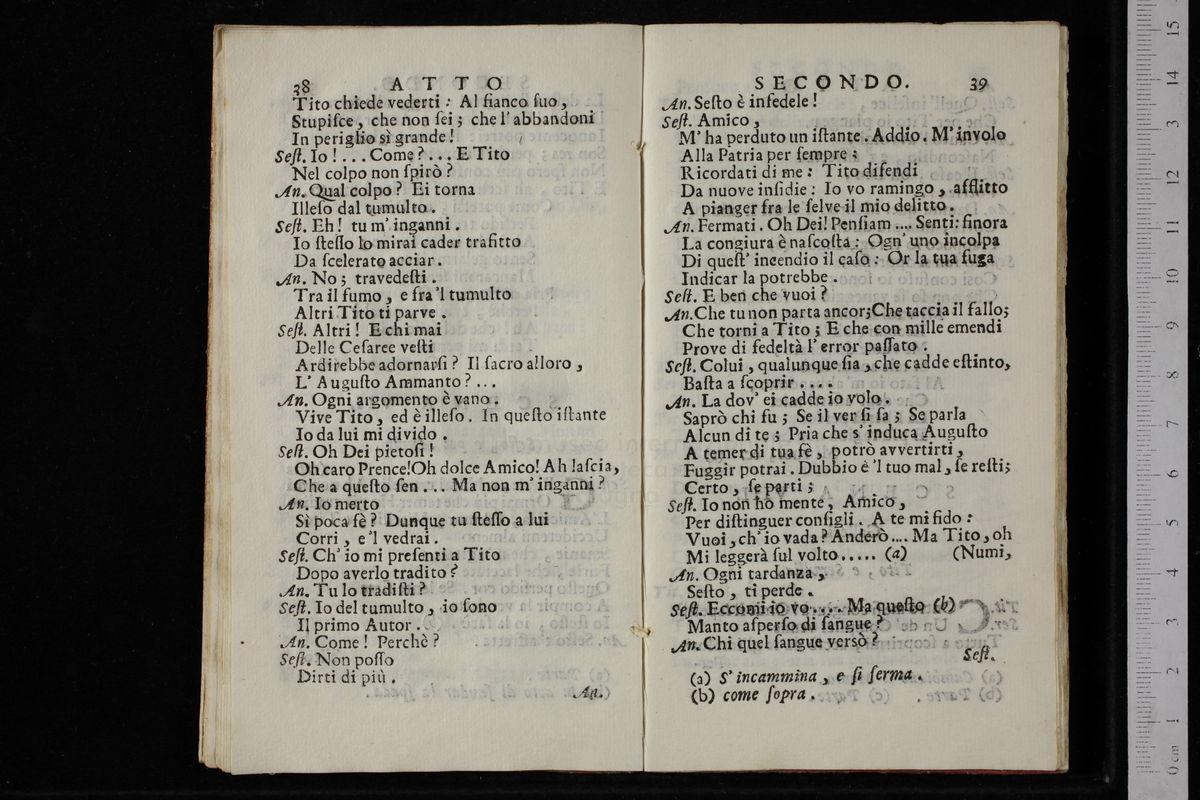 38 ATTO
Tito chiede vederti : Al fianco suo ,
Stupisce , che non sei ; che l' abbandoni
In periglio sì grande !
Sest. Io ! . . . Come ? . . . E Tito
Nel colpo non spirò ?
An. Qual colpo ? Ei torna
Illeso dal tumulto .
Sest. Eh ! tu m' inganni .
Io stesso lo mirai cader trafitto
Da scelerato acciar .
An. No ; travedesti .
Tra il fumo , e fra 'l tumulto
Altri Tito ti parve .
Sest. Altri ! E chi mai
Delle Cesaree vesti
Ardirebbe adornarsi ? Il sacro alloro ,
L' Augusto Ammanto ? . . .
An. Ogni argomento è vano .
Vive Tito , ed è illeso . In questo istante
Io da lui mi divido .
Sest. Oh Dei pietosi !
Oh caro Prence!Oh dolce Amico! Ah lascia,
Che a questo sen . . . Ma non m' inganni ?
An. Io merto
Sì poca fè ? Dunque tu stesso a lui
Corri , e 'l vedrai .
Sest. Ch' io mi presenti a Tito
Dopo averlo tradito ?
An. Tu lo tradisti ?
Sest. Io del tumulto , io sono
Il primo Autor .
An. Come ! Perchè ?
Sest. Non posso
Dirti di più .
An.
SECONDO. 39
An. Sesto è infedele !
Sest. Amico ,
M' ha perduto un istante . Addio . M' involo
Alla Patria per sempre ;
Ricordati di me : Tito difendi
Da nuove insidie : Io vo ramingo , afflitto
A pianger fra le selve il mio delitto .
An. Fermati . Oh Dei! Pensiam .... Senti: finora
La congiura è nascosta : Ogn' uno incolpa
Di quest' incendio il caso : Or la tua fuga
Indicar la potrebbe .
Sest. E ben che vuoi ?
An. Che tu non parta ancor;Che taccia il fallo;
Che torni a Tito ; E che con mille emendi
Prove di fedeltà l' error passato .
Sest. Colui , qualunque sia , che cadde estinto,
Basta a scoprir . . . .
An. La dov' ei cadde io volo .
Saprò chi fu ; Se il ver si sa ; Se parla
Alcun di te ; Pria che s' induca Augusto
A temer di tua fè , potrò avvertirti ,
Fuggir potrai . Dubbio è 'l tuo mal , se resti;
Certo , se parti ;
Sest. Io non hò mente , Amico ,
Per distinguer consigli . A te mi fido :
Vuoi , ch' io vada ? Anderò .... Ma Tito , oh
Mi leggerà sul volto ..... (a) (Numi,
An. Ogni tardanza ,
Sesto , ti perde .
Sest. Eccomi io vo .... Ma questo (b)
Manto asperso di sangue ?
An. Chi quel sangue versò ?
Sest.
(a) S' incammina , e si ferma .
(b) come sopra .